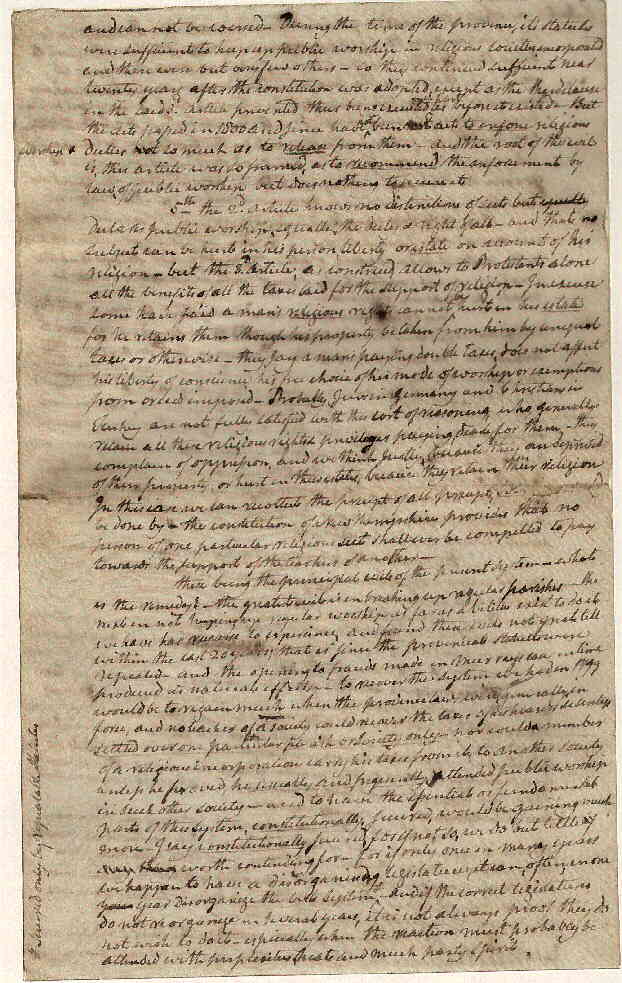 and cannot be coerced - During the time of the province, its statutes
were sufficient to keep up public worship in religious societies incorporated
and there were but very few others - so they continued sufficient near
twenty years after the constitution was adopted, except as the
in the said 3. article prevented their being executed as before it existed - But
the acts passed in 1800 and since have not been acts to enforce religious
worship & duties so much as to release from them - and the root of the evil
is, this article was so framed, as to recommend the enforcement by
law of public worship but does nothing to execute
5th the 2d article knows no distinctions of sects but equally
public worship equally the duty & right of all - and that no
subject can be hurt in his person liberty or estate on account of his
religion - but the 3d article, as construed allows to Protestants alone
all the benefits of all the taxes laid for the support of religion - In excuse
some have said a man's religious rights cannot be hurt in his estate
for he retains them though his property be taken from him by unequal
taxes or otherwise - they say a man's paying double taxes, does not affect
his liberty of conscience his free choice of his mode of worship or exemptions
from creed imposed - Probably Jews in Germany and Christians in
Turkey are not fully satisfied with this sort of reasoning who generally
retain all their religious rights & privileges paying for them - they
complain of oppression, and we think justly, because they are deprived
of their property, or hurt in their estates, because they retain their religion
In this case we can recollect the precept of all precepts,
be done by - the constitution of New Hampshire provides that no
person of one particular religious sect shall ever be compelled to pay
towards the support of the teachers of another -
These being the principal evils of the present system - what
is the remedy? - the great evil is in breaking up regular parishes - the
next in not
we have had recourse to experience and found these evils not great till
within the last 20 years, that is since the provincial statutes were
repealed - and the opening to frauds made in over rays can in time
produced its natural effects - to recover the system we had in 1799
would be to regain much when the province laws were generally in
force, and no teacher of a society could receive the taxes of his hearers unless
settled over one particular parish or society only - nor could a member
of a religious incorporation carry his taxes from it, to another society
unless he proved he usually and frequently attended public worship
in such other society - and to have the essential or fundamental
parts of this system, constitutionally secured, would be gaining much
more - I say constitutionally secured, for if not so, we do but little
worth contending for - for if only once in many years
we happen to have a disorganizing legislature it can, often in one
year disorganize the best system - and if the correct legislatures
do not reorganize in several years, it is not always proof they do
not wish to do it - especially when the reaction must probably be
attended with perplexities, heats and much party spirit.
secured only by repealable statutes